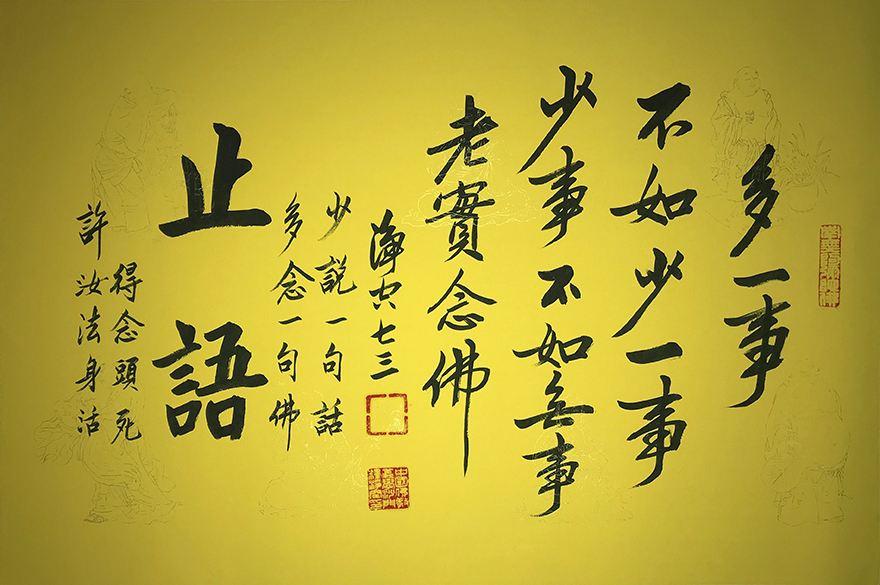 多一事
不如少一事
少事不如無事
老實念佛
淨空七三
少説一句話
多念一句佛
止語
得念頭死
許汝法身活